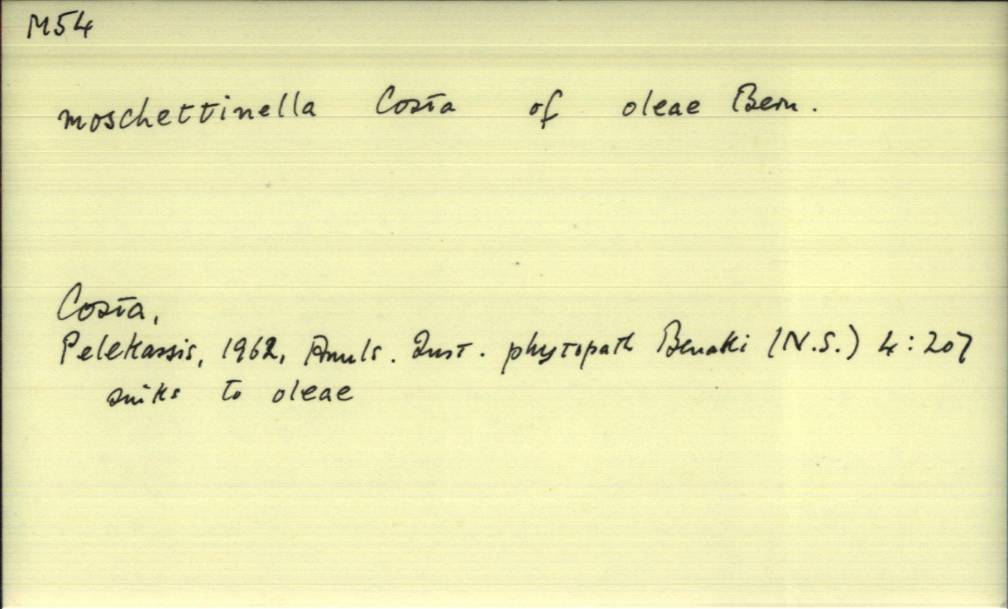 M54
moschettinella Costa of oleae Bern.
Costa,
Pelekassis, 1962, Annls. Inst. phytopath Benaki (N.S.) 4:207
sinks to oleae